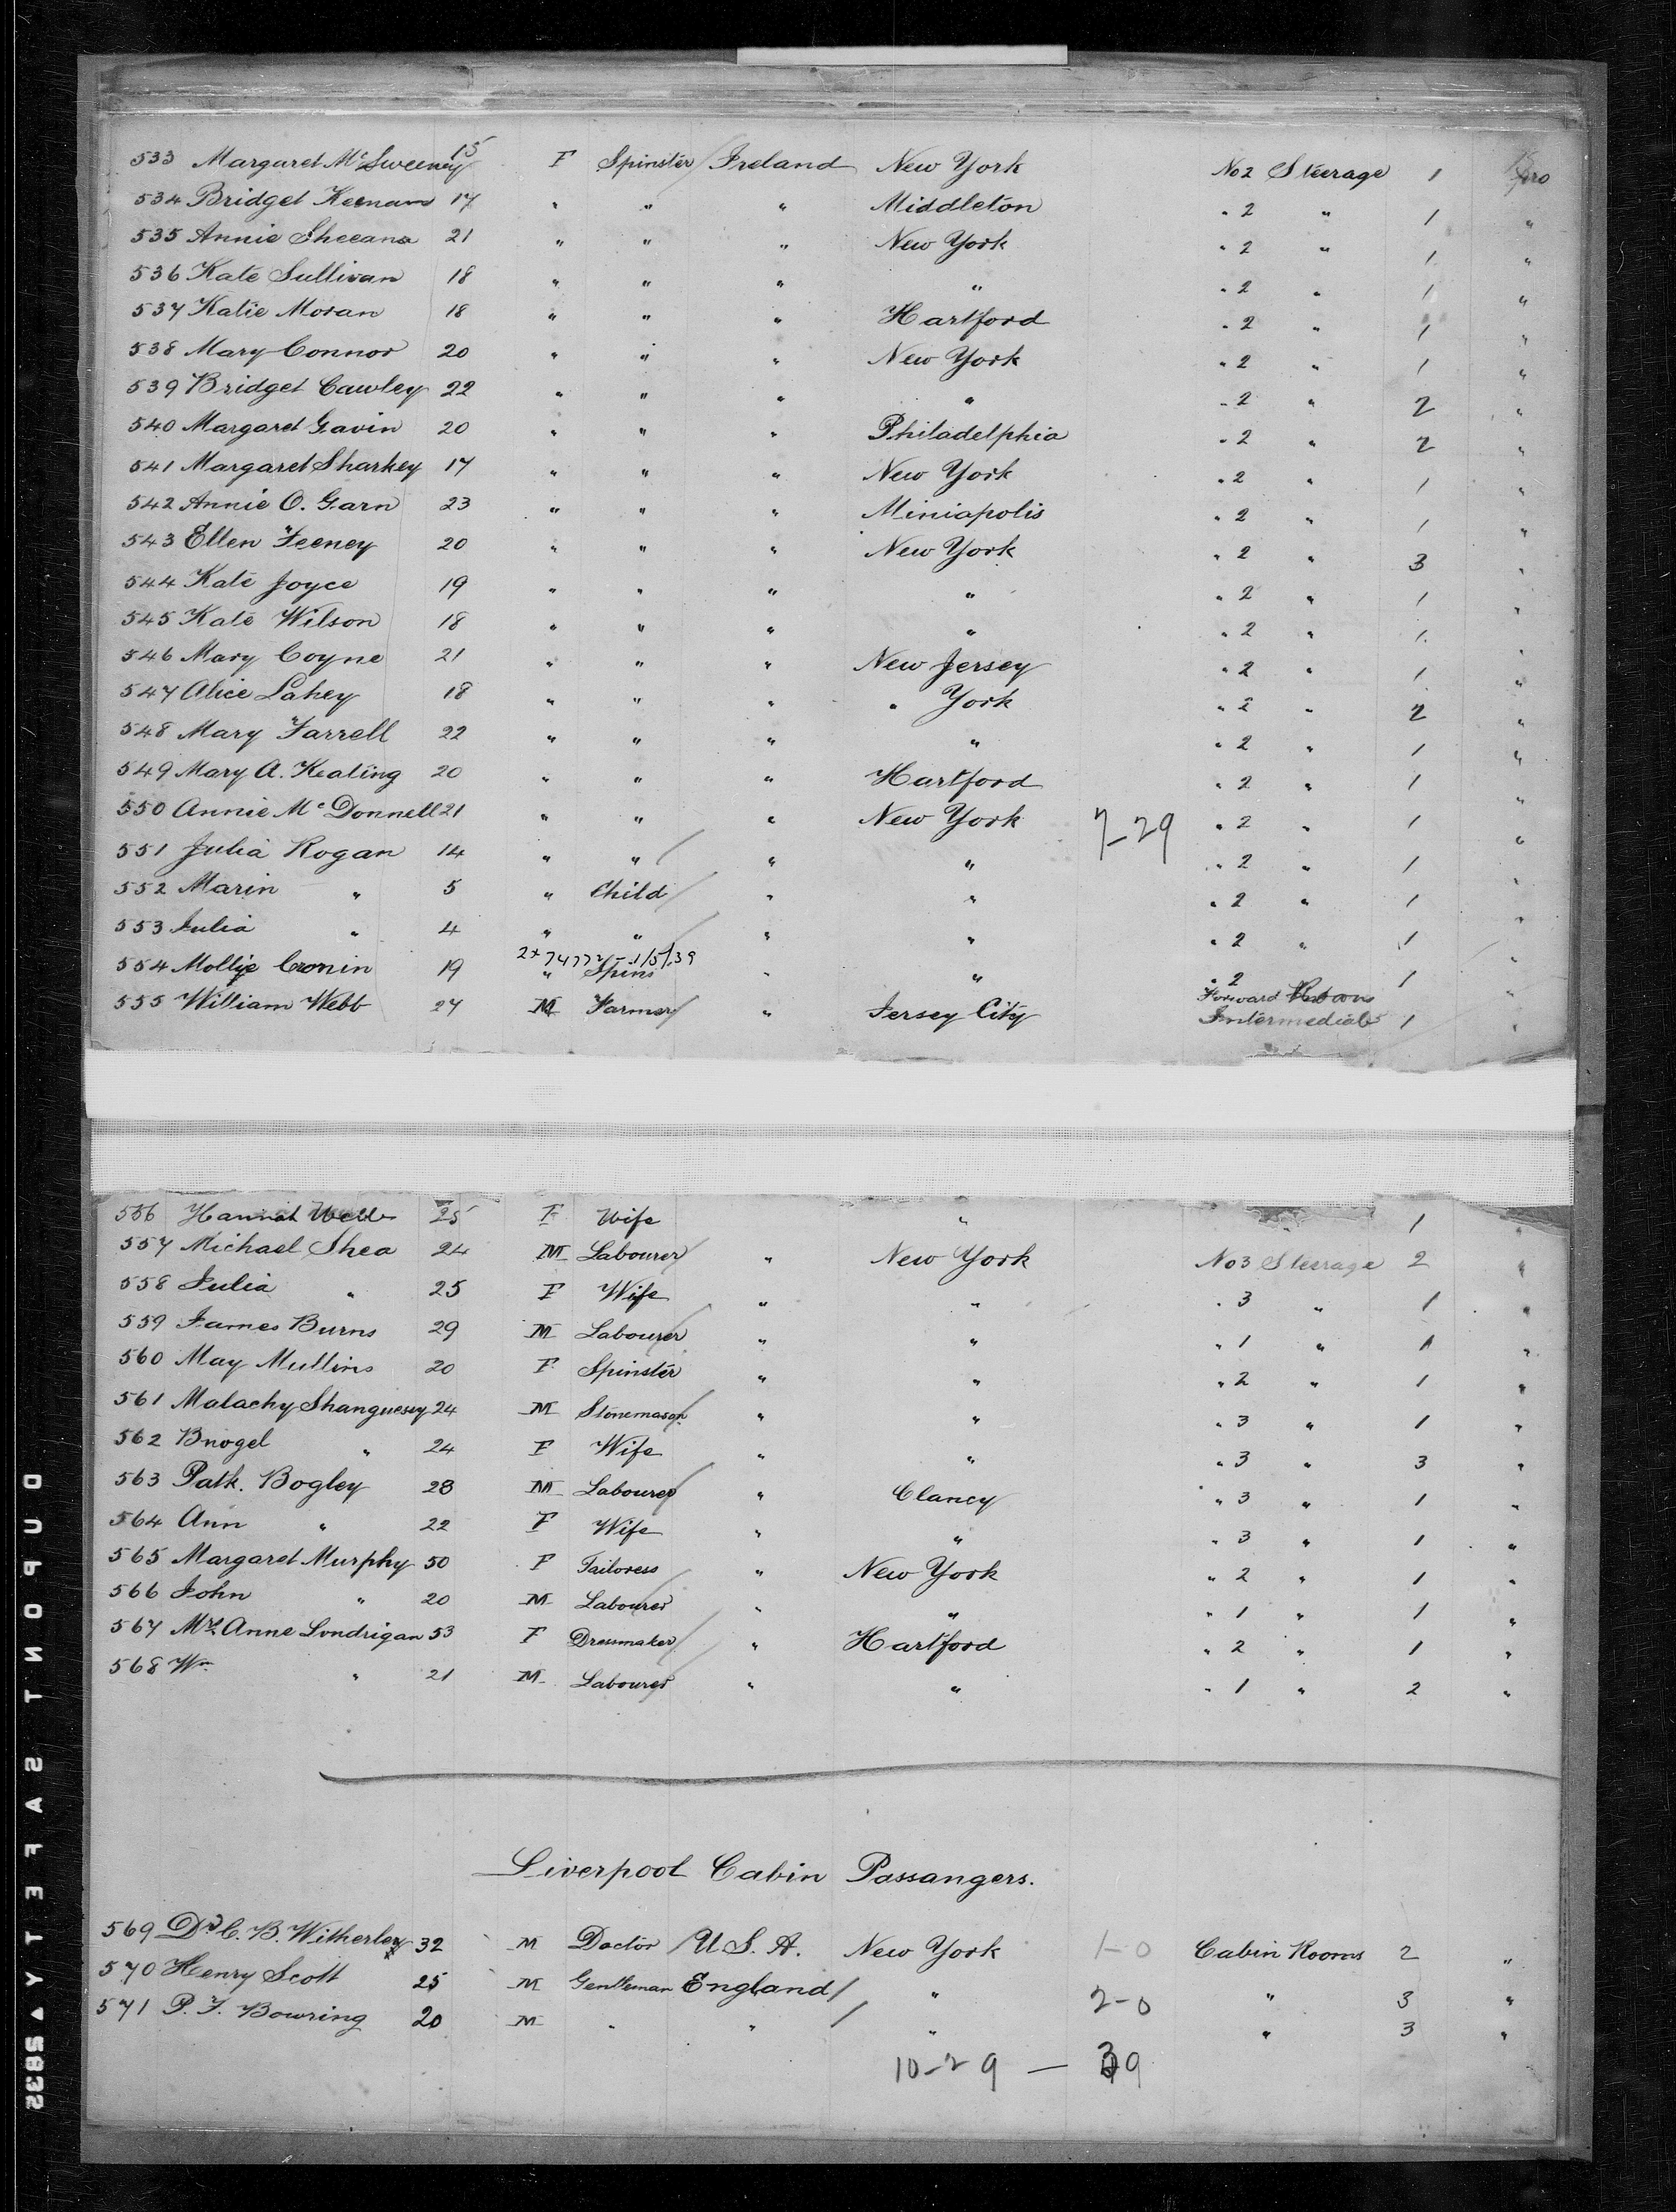 533 Margaret McSweeney 15 F Spinster Ireland New York No 2 Steerage 1
534 Bridget Keenan 17 " " " Middleton " 2 " 1 "
535 Annie Sheeana 21 " " " New York " 2 " 1 "
536 Kate Sullivan 18 " " " " " 2 " 1 "
537 Katie Moran 18 " " " Hartford " 2 " 1 "
538 Mary Connor 20 " " " New York " 2 " 1 "
539 Bridget Cawley 22 " " " " " 2 " 2 "
540 Margaret Gavin 20 " " " Philadelphia " 2 " 2 "
541 Margaret Sharkey 17 " " " New York " 2 " 1 "
542 Annie O. Garn 23 " " " Miniapolis " 2 " 1 "
543 Ellen Feeney 20 " " " New York " 2 " 3 "
544 Kate Joyce 19 " " " " " 2 " 1 "
545 Kate Wilson 18 " " " " " 2 " 1 "
546 Mary Coyne 21 " " " New Jersey " 2 " 1 "
547 Alice Lahey 18 " " " " York " 2 " 2 "
548 Mary Farrell 22 " " " " " 2 " 1 "
549 Mary A. Keating 20 " " " Hartford " 2 " 1 "
550 Annie McDonnell 21 " " " New York 7-29 " 2 " 1 "
551 Julia Rogan 14 " " " " " 2 " 1 "
552 Marin " 5 " Child " " " 2 " 1 "
553 Julia " 4 " " " " " 2 " 1 "
2x74772-1/5/39
554 Mollie Cronin 19 " Spins " " " 2 1 "
555 William Webb 27 M Farmer " Jersey City Forward Intermediate 1 "
556 Hannah Webb 25 F Wife " 1 "
557 Michael Shea 24 M Labourer " New York No 3 Steerage 2 "
558 Julia " 25 F Wife " " " 3 " 1 "
559 James Burns 29 M Labourer " " " 1 " 1 "
560 May Mullins 20 F Spinster " " " 2 " 1 "
561 Malachy Shanguesey 24 M Stonemason " " " 3 " 1 "
562 Bnogel " 24 F Wife " " " 3 " 3 "
563 Patk. Bogley 28 M Labourer " Clancy " 3 " 1 "
564 Ann " 22 F Wife " " " 3 " 1 "
565 Margaret Murphy 50 F Tailoress " New York " 2 " 1 "
566 John " 20 M Labourer " " " 1 " 1 "
567 Mrs Anne Londrigan 53 F Dressmaker " Hartford " 2 " 1 "
568 Wm " 21 M Labourer " " " 1 " 2 "
Liverpool Cabin Passangers.
569 Dr C. B. Witherley 32 M Doctor U.S.A. New York 1-0 Cabin Rooms 2 "
570 Henry Scott 25 M Gentleman England " 2-0 " 3 "
571 P. F. Bowring 20 M " " " " 3 "
10-29 — 39
DUPONT SAFETY 5832